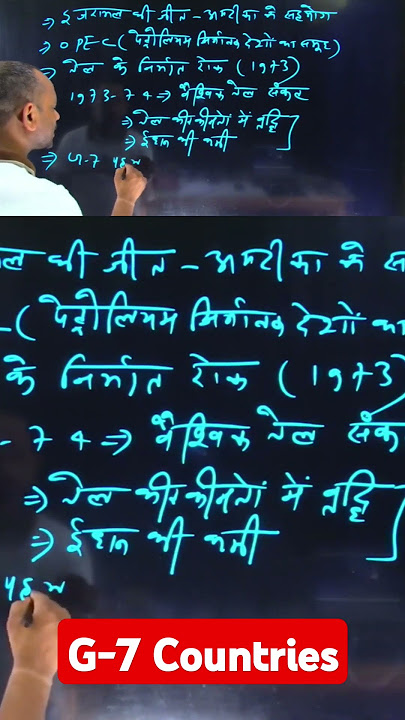 ⇒ इजरायल की जीत - अमरीका के सहयोग
⇒ OPEC (पेट्रोलियम निर्यातक देशों का समूह)
⇒ तेल के निर्यात रोक (1973)
1973-74 ⇒ वैश्विक तेल संकट
⇒ तेल की कीमतों में वृद्धि
⇒ ईंधन की कमी
⇒ G-7
ल की जीत - अमरीका के स
-(पेट्रोलियम निर्यातक देशों का
के निर्यात रोक (1973)
- 74 ⇒ वैश्विक तेल संक
⇒ तेल की कीमतों में वृद्धि
⇒ ईंधन की कमी
G-7 Countries